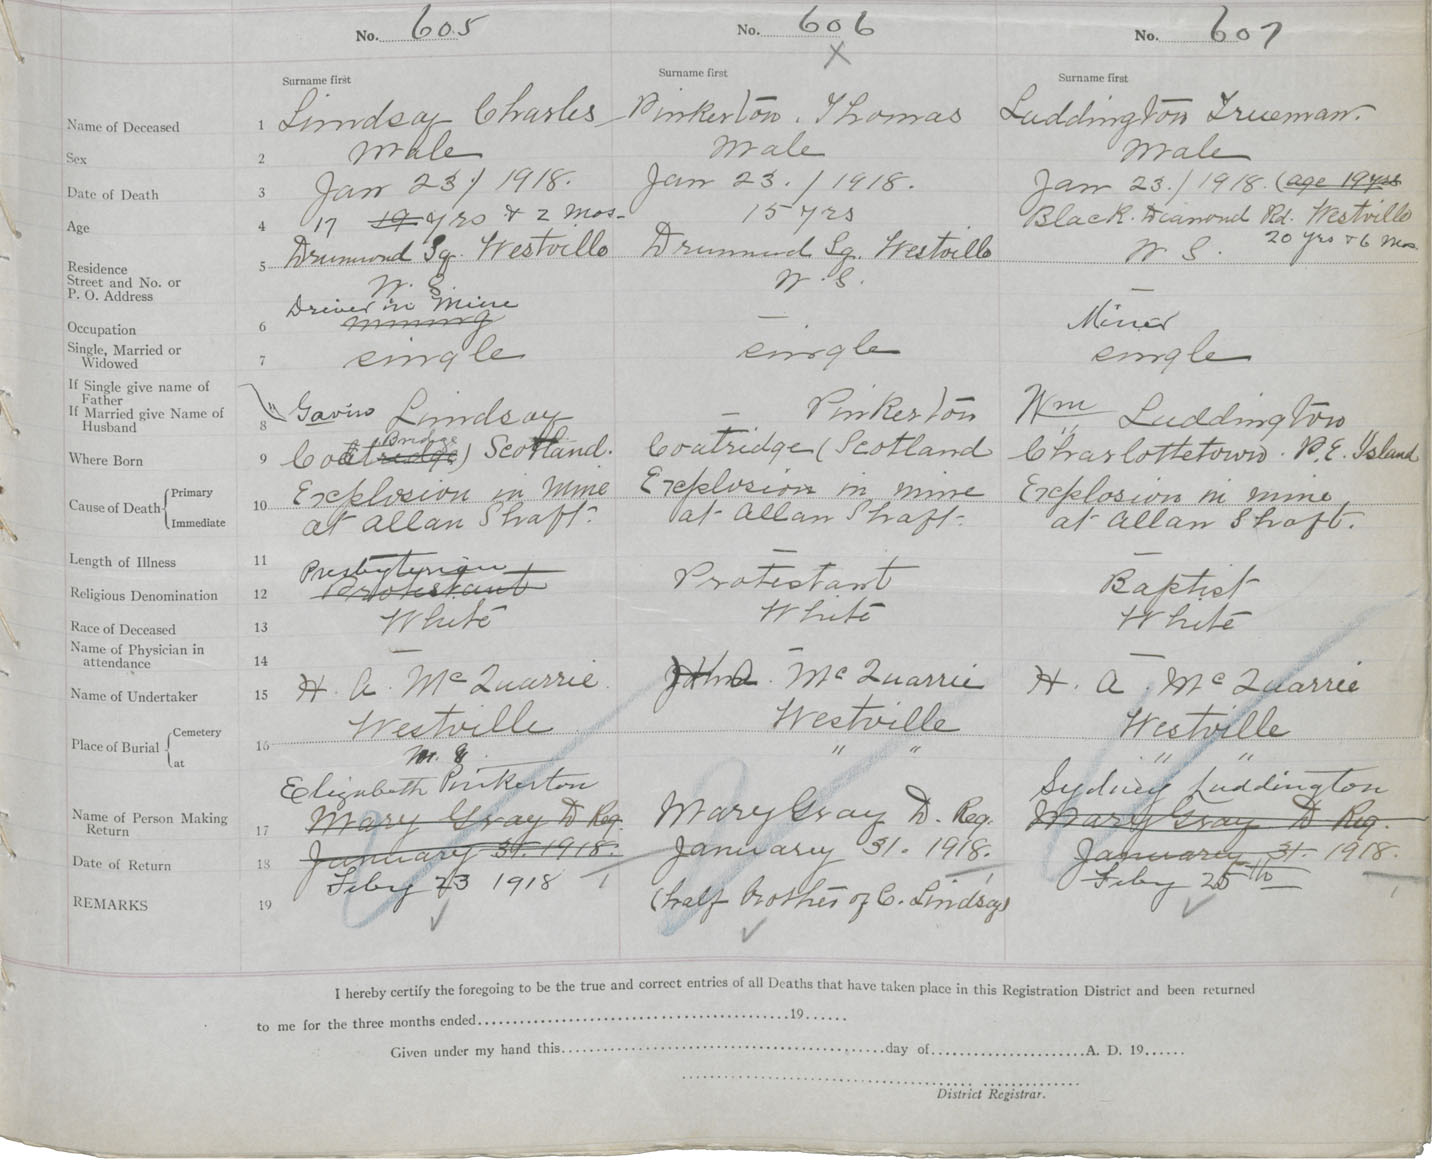 No. 605 No. 606 No. 607
X
Surname first Surname first Surname first
Name of Deceased 1 Lindsay Charles Pinkerton, Thomas Luddington Trueman.
Sex 2 Male Male Male
Date of Death 3 Jan 23/1918. Jan 23./1918. Jan 23./1918. (age 19 yrs
Age 4 17 19 yrs & 2 Mos. 15 yrs Black Diamond Rd. Westville
20 yrs & 6 Mos.
Residence
Street and No. or
P. O. Address 5 Drummond Sq. Westville Drummond Sq. Westville N. S.
N. S. N. S.
Driver in Mine
Occupation 6 mining — Miner
Single, Married or
Widowed 7 single single single
If Single give name of
Father
If Married give Name of
Husband 8 " Gavin Lindsay — Pinkerton Wm Luddington
Bridge
Where Born 9 Coatridge) Scotland. Coatridge (Scotland Charlottetown. P. E. Island
Cause of Death Primary
Immediate 10 Explosion in Mine Explosion in mine Explosion in mine,
at Allan Shaft. at Allan Shaft. at Allan Shaft.
Length of Illness 11 — —
Presbyterian
Religious Denomination 12 Protestant Protestant Baptist
Race of Deceased 13 White White White
Name of Physician in
attendance 14 — — —
Name of Undertaker 15 H. A. McQuarrie McQuarrie H. A. McQuarrie
Place of Burial Cemetery
at 16 Westville Westville Westville
N. S. " " " "
Elizabeth Pinkerton Sydney Luddington
Name of Person Making
Return 17 Mary Gray D Reg. Mary Gray D. Reg. Mary Gray D Reg.
Date of Return 18 January 31. 1918. January 31. 1918. January 31. 1918.
Feby 23 1918 Feby 25th
REMARKS 19 (half brother of C. Lindsay)
I hereby certify the foregoing to be the true and correct entries of all Deaths that have taken place in this Registration District and been returned
to me for the three months ended 19
Given under my hand this day of A. D. 19
District Registrar.